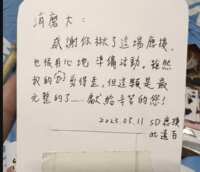 消磨大：
感謝你揪了這場應援，
也很用心地準備活動。雖然
我的字剪得歪，但這顆是最
完整的了…… 獻給辛苦的您！
2023.05.11 SD應援